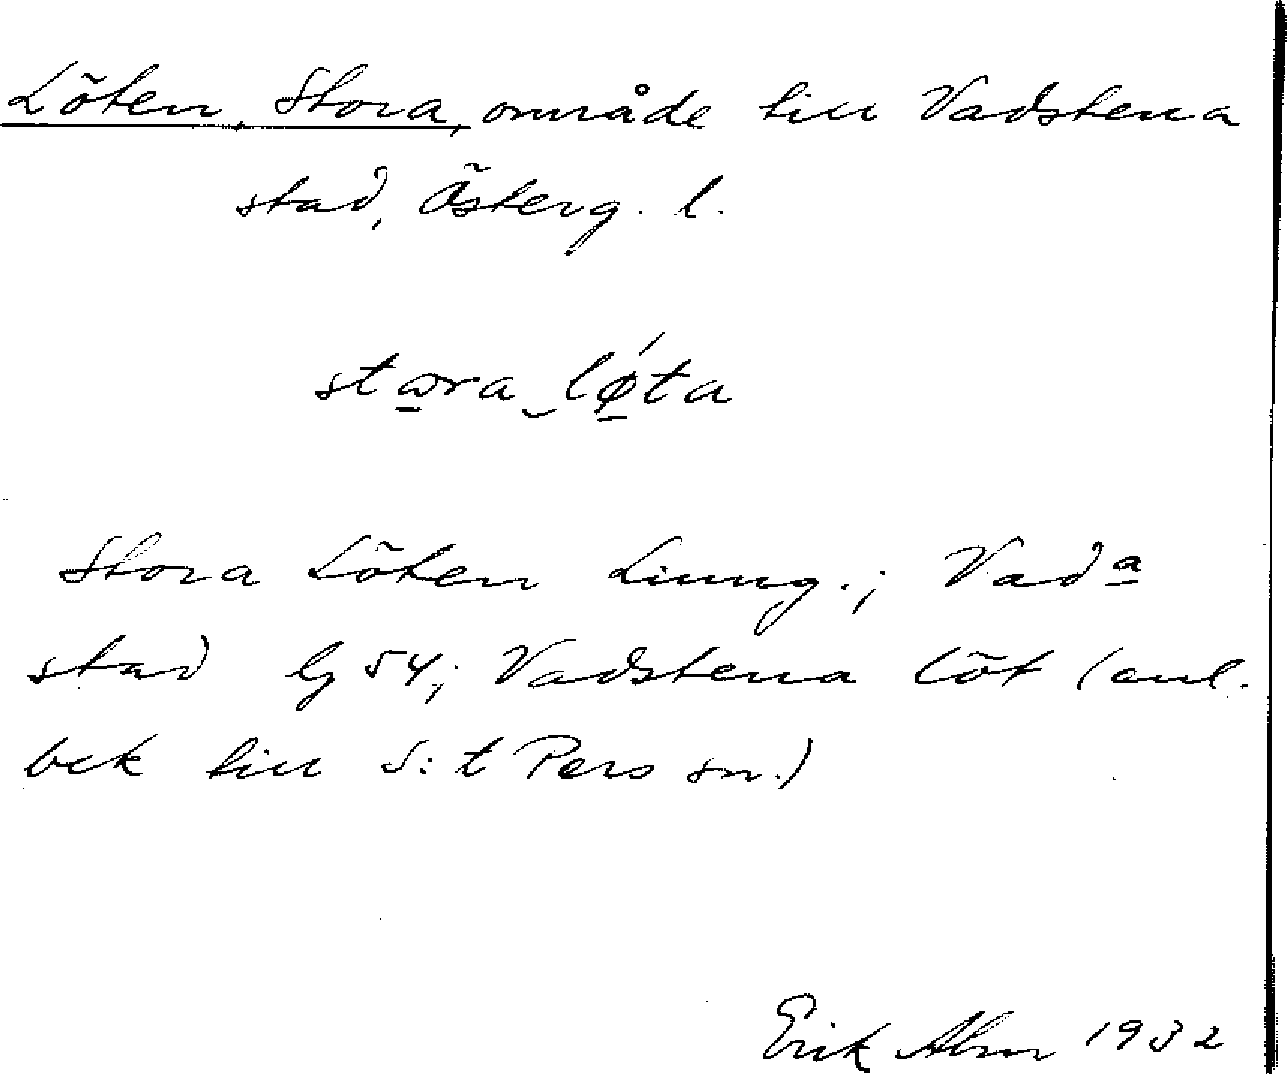 Löten, Stora, område till Vadstena
stad, Österg. l.
stɷra lǿta
Stora Löten Ljung.; Vad<sup>a</sup>
stad lj 54; Vadstena löt (anl.
bek till S:t Pers sn.)
Erik Alm 1932